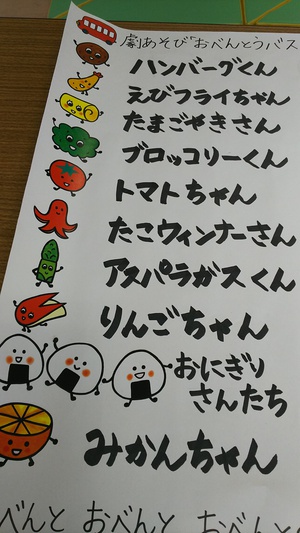 劇あそび「おべんとうバス
ハンバーグくん
えびフライちゃん
たまごやきさん
ブロッコリーくん
トマトちゃん
たこウィンナーさん
アスパラガスくん
りんごちゃん
おにぎり
さんたち
みかんちゃん
べんと おべんと おべんと